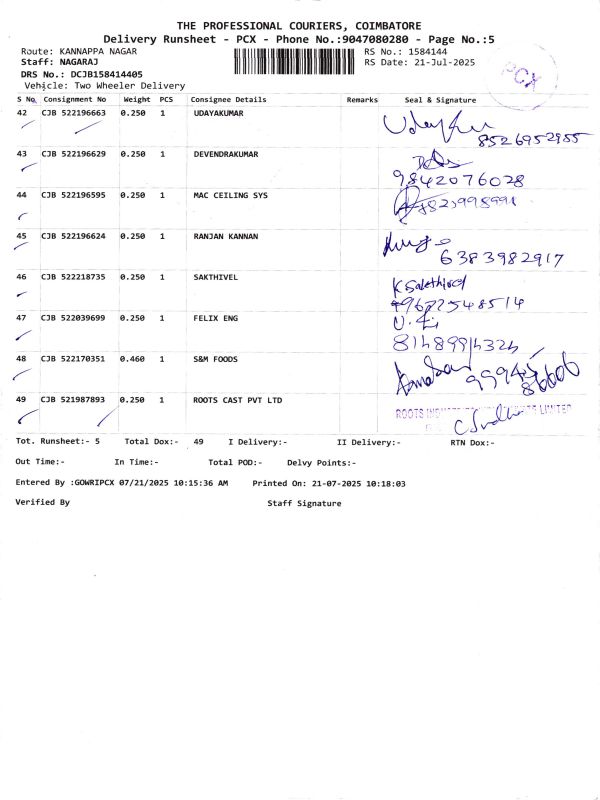 THE PROFESSIONAL COURIERS, COIMBATORE
Delivery Runsheet - PCX - Phone No.:9047080280 - Page No.:5
Route: KANNAPPA NAGAR RS No.: 1584144
Staff: NAGARAJ RS Date: 21-Jul-2025
DRS No.: DCJB158414405
Vehicle: Two Wheeler Delivery
PCX
S No. Consignment No Weight PCS Consignee Details Remarks Seal & Signature
42 CJB 522196663 0.250 1 UDAYAKUMAR
8526952955
43 CJB 522196629 0.250 1 DEVENDRAKUMAR
9842076028
44 CJB 522196595 0.250 1 MAC CEILING SYS
45 CJB 522196624 0.250 1 RANJAN KANNAN
6383982917
46 CJB 522218735 0.250 1 SAKTHIVEL
K Sakthivel
47 CJB 522039699 0.250 1 FELIX ENG
48 CJB 522170351 0.460 1 S&M FOODS
49 CJB 521987893 0.250 1 ROOTS CAST PVT LTD
ROOTS LIMITED
Tot. Runsheet:- 5 Total Dox:- 49 I Delivery:- II Delivery:- RTN Dox:-
Out Time:- In Time:- Total POD:- Delvy Points:-
Entered By :GOWRIPCX 07/21/2025 10:15:36 AM Printed On: 21-07-2025 10:18:03
Verified By Staff Signature